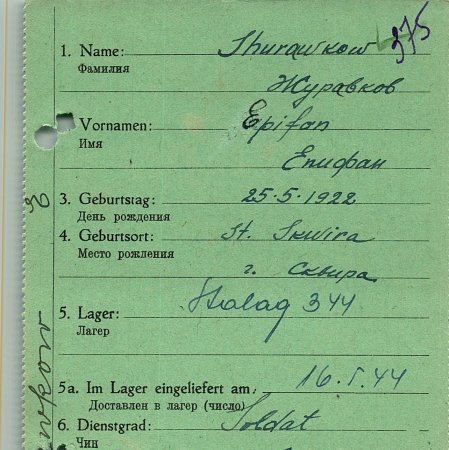 375
1. Name: Shurawkow
Фамилия
Журавков
Vornamen: Epifan
Имя
Епифан
3. Geburtstag: 25.5.1922
День рождения
4. Geburtsort: St. Skwira
Место рождения
г. Сквира
5. Lager: Stalag 344
Лагерь
5a. Im Lager eingeliefert am: 16.I.44
Доставлен в лагер (число)
6. Dienstgrad: Soldat
Чин